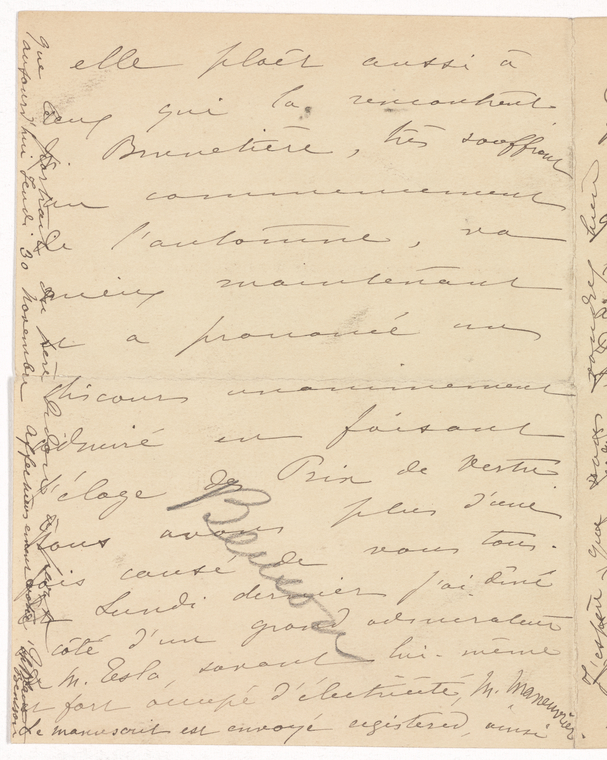 elle plaît aussi à
ceux qui la rencontrent.
Brunetière, très souffrant
au commencement
de l'automne, va
mieux maintenant
et a prononcé un
discours unanimement
admiré en faisant
l'éloge des Prix de Vertu.
Nous avons plus d'une
fois causé de vous tous.
Lundi dernier j'ai dîné
à côté d'un grand admirateur
de M. Tesla, savant lui-même
et fort occupé d'électricité, M. Maneuvrier.
Le manuscrit est envoyé registered, ainsi
que les portraits du père
aujourd'hui Jeudi 30 November
Affectueusement
Bentzon
J'espère que vous voudrez bien